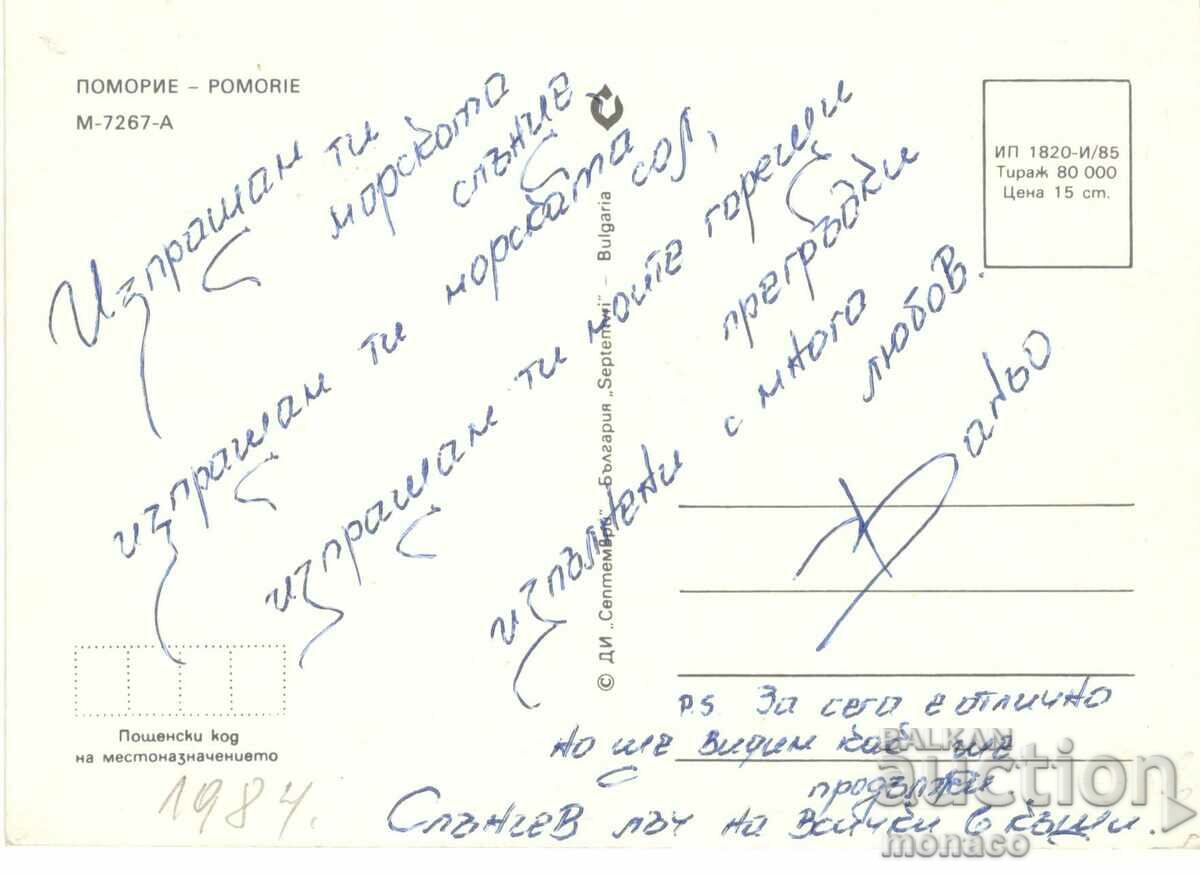 ПОМОРИЕ – POMORIE
М-7267-А
ИП 1820-И/85
Тираж 80 000
Цена 15 ст.
Изпращам ти
морското
слънце,
изпращам ти морската сол,
изпращам ти моите горещи
прегръдки
изпълнени с много
любов.
Даньо
© ДИ „Септември" – България „Septemvri" – Bulgaria
P.S. За сега е отлично
но ще видим как ще
продължи.
Слънчев лъч на всички в къщи.
Пощенски код
на местоназначението
1984.
BALKAN
auction
monaco